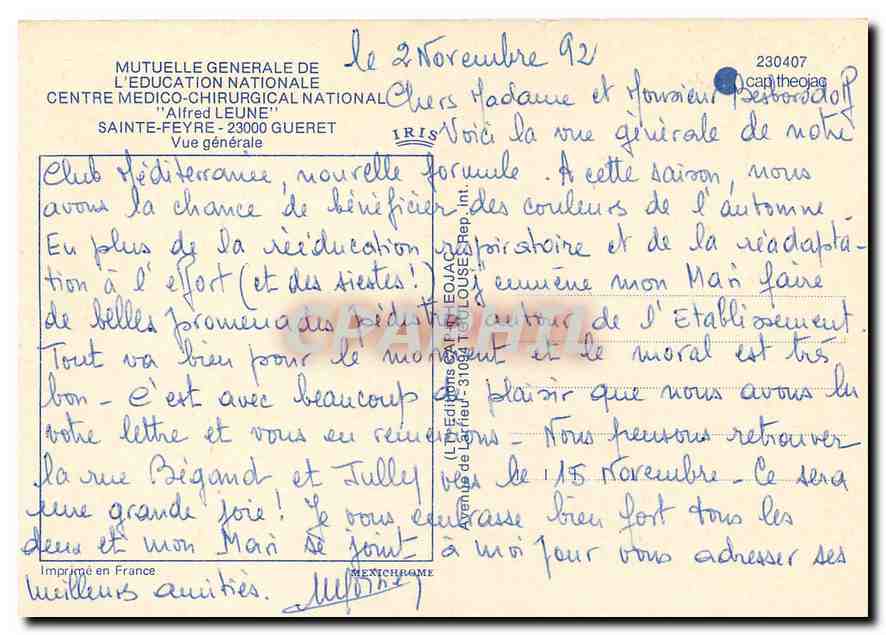 le 2 Novembre 92
MUTUELLE GENERALE DE
L'EDUCATION NATIONALE
CENTRE MEDICO-CHIRURGICAL NATIONAL
"Alfred LEUNE"
SAINTE-FEYRE - 23000 GUERET
Vue générale
230407
cap theojac
IRIS
Chers Madame et Monsieur
Voici la vue générale de notre
Club Méditerranée, nouvelle formule. A cette saison, nous
avons la chance de bénéficier des couleurs de l'automne
En plus de la rééducation respiratoire et de la réadapta-
tion à l'effort (et des siestes!) j'emmène mon Mari faire
de belles promenades pédestres autour de l'Etablissement.
Tout va bien pour le moment et le moral est très
bon - C'est avec beaucoup de plaisir que nous avons lu
votre lettre et vous en remercions - Nous pensons retrouver
la rue Bégand et Jully vers le 15 Novembre - Ce sera
une grande joie! Je vous embrasse bien fort tous les
deux et mon Mari se joint à moi pour vous adresser ses
meilleurs amitiés.
(LT) Editions CAP-THEOJAC
Avenue de Larrieu - 31094 TOULOUSE Rep. int.
Imprimé en France
MEXICHROME
CPArama